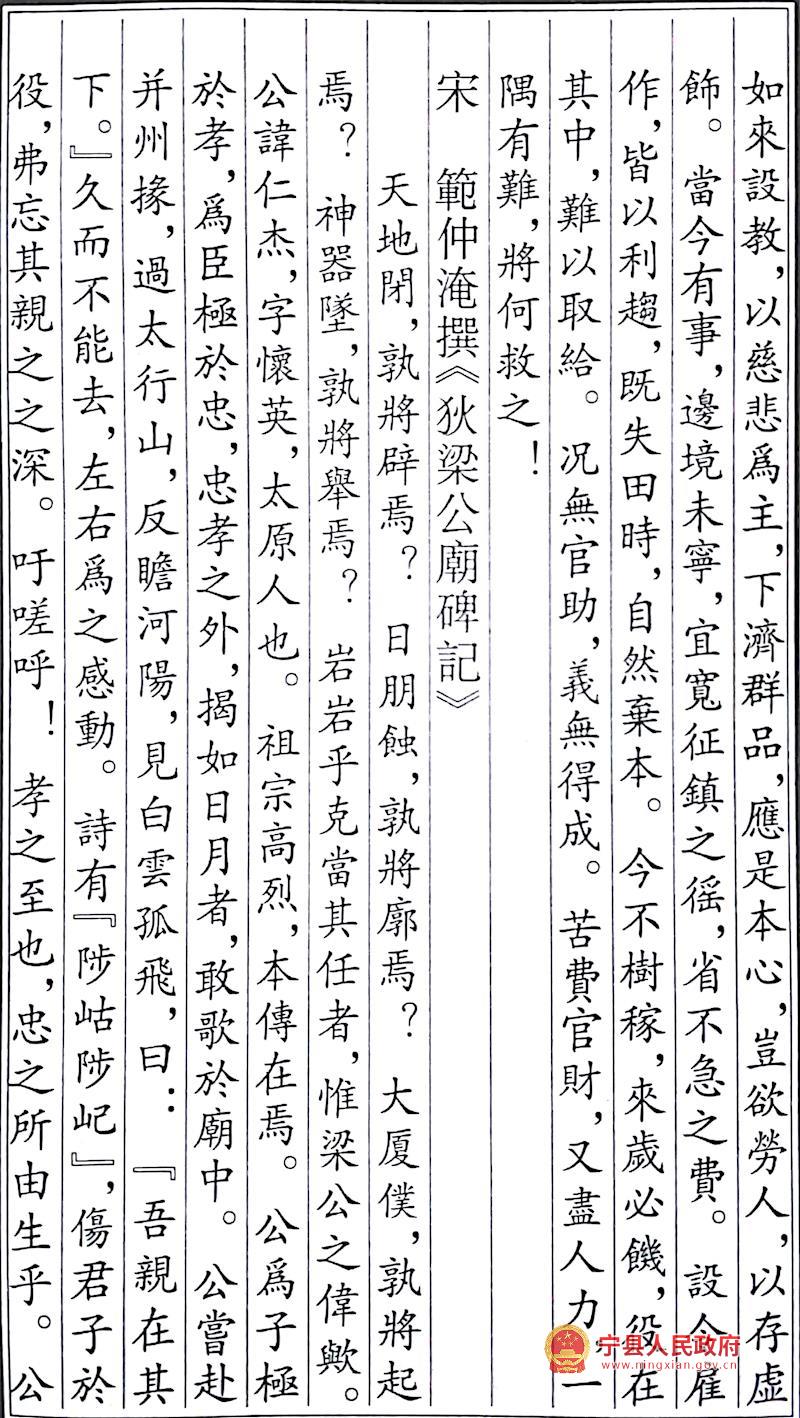 如來設教，以慈悲爲主，下濟群品，應是本心，豈欲勞人，以存虛
飾。當今有事，邊境未寧，宜寬征鎮之徭，省不急之費。設令雇
作，皆以利趨，既失田時，自然棄本。今不樹稼，來歲必饑，役在
其中，難以取給。況無官助，義無得成。苦費官財，又盡人力，一
隅有難，將何救之！
宋　範仲淹撰《狄梁公廟碑記》
天地閉，孰將辟焉？日朋蝕，孰將廓焉？大厦僕，孰將起
焉？神器墜，孰將舉焉？岩岩乎克當其任者，惟梁公之偉歟。
公諱仁杰，字懷英，太原人也。祖宗高烈，本傳在焉。公爲子極
於孝，爲臣極於忠，忠孝之外，揭如日月者，敢歌於廟中。公嘗赴
并州掾，過太行山，反瞻河陽，見白雲孤飛，曰：『吾親在其
下。』久而不能去，左右爲之感動。詩有『陟岵陟屺』，傷君子於
役，弗忘其親之之深。吁嗟呼！孝之至也，忠之所由生乎。公
宁县人民政府
www.ningxian.gov.cn